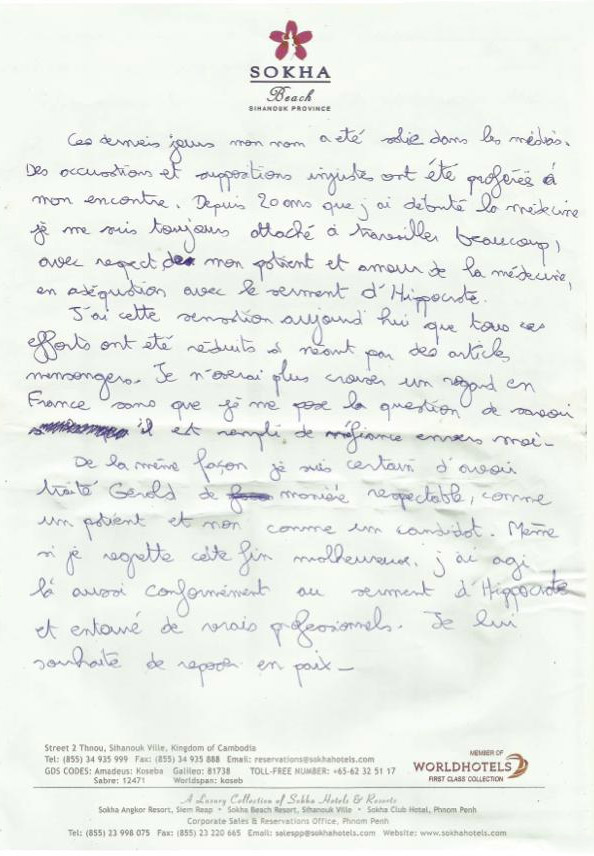 SOKHA
Beach
SIHANOUK PROVINCE
Ces derniers jours mon nom a été salie dans les médias.
Des accusations et suppositions injustes ont été proférées à
mon encontre. Depuis 20 ans que j'ai débuté la médecine
je me suis toujours attaché à travailler beaucoup,
avec respect de mon patient et amour de la médecine,
en adéquation avec le serment d'Hippocrate.
J'ai cette sensation aujourd'hui que tous ces
efforts ont été réduits à néant par des articles
mensongers. Je n'oserai plus croiser un regard en
France sans que je me pose la question de savoir
s'il est rempli de méfiance envers moi -
De la même façon je suis certain d'avoir
traité Gérald de manière respectable, comme
un patient et non comme un candidat. Même
si je regrette cette fin malheureuse, j'ai agi
là aussi conformément au serment d'Hippocrate
et entouré de vrais professionnels. Je lui
souhaite de reposer en paix -
Street 2 Thnou, Sihanouk Ville, Kingdom of Cambodia
Tel: (855) 34 935 999 Fax: (855) 34 935 888 Email: reservations@sokhahotels.com
GDS CODES: Amadeus: Koseba Galileo: 81738 TOLL-FREE NUMBER: +65-62 32 51 17
Sabre: 12471 Worldspan: koseb
MEMBER OF
WORLDHOTELS
FIRST CLASS COLLECTION
A Luxury Collection of Sokha Hotels & Resorts
Sokha Angkor Resort, Siem Reap • Sokha Beach Resort, Sihanouk Ville • Sokha Club Hotel, Phnom Penh
Corporate Sales & Reservations Office, Phnom Penh
Tel: (855) 23 998 075 Fax: (855) 23 220 665 Email: salespp@sokhahotels.com Website: www.sokhahotels.com